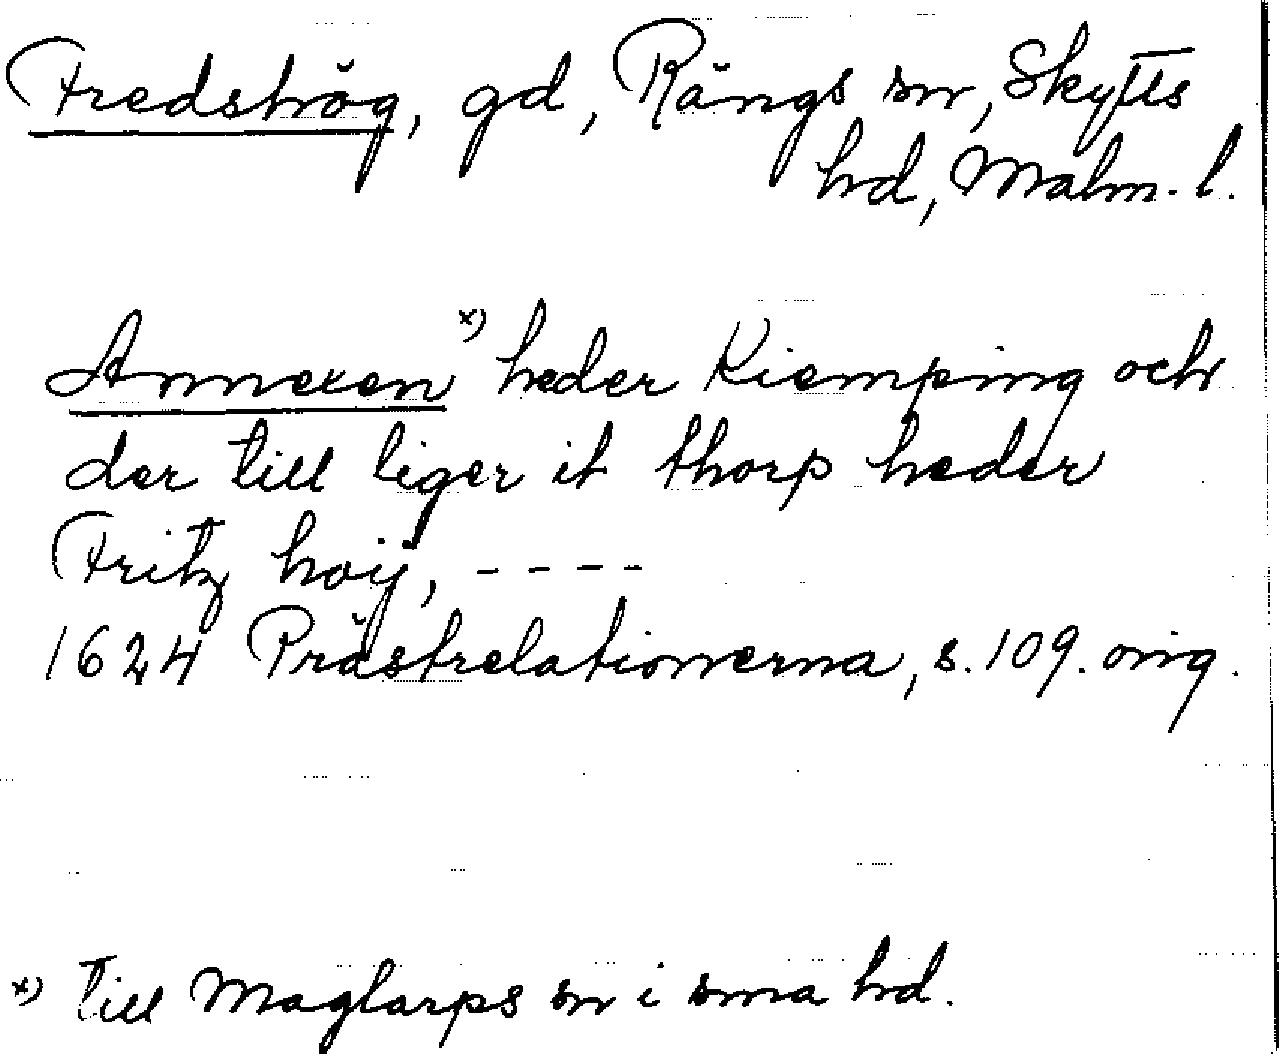 Fredshög, gd, Rängs sn, Skytts
hd, Malm. l.
Annexen x) heder Kiemping och
der till liger it thorp heder
Fritz hoÿ, - - - -
1624 Prästrelationerna, s. 109. orig.
x) Till Maglarps sn i sma hd.